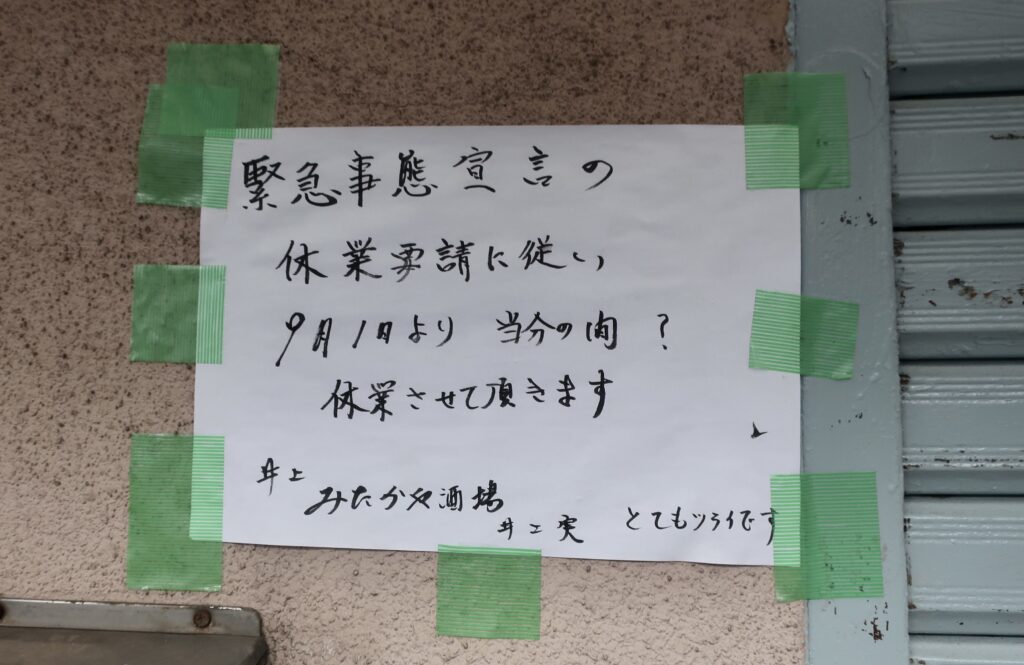 緊急事態宣言の
休業要請に従い
9月1日より 当分の間 ?
休業させて頂きます
井上
みたかや酒場
井上実
とてもツライです